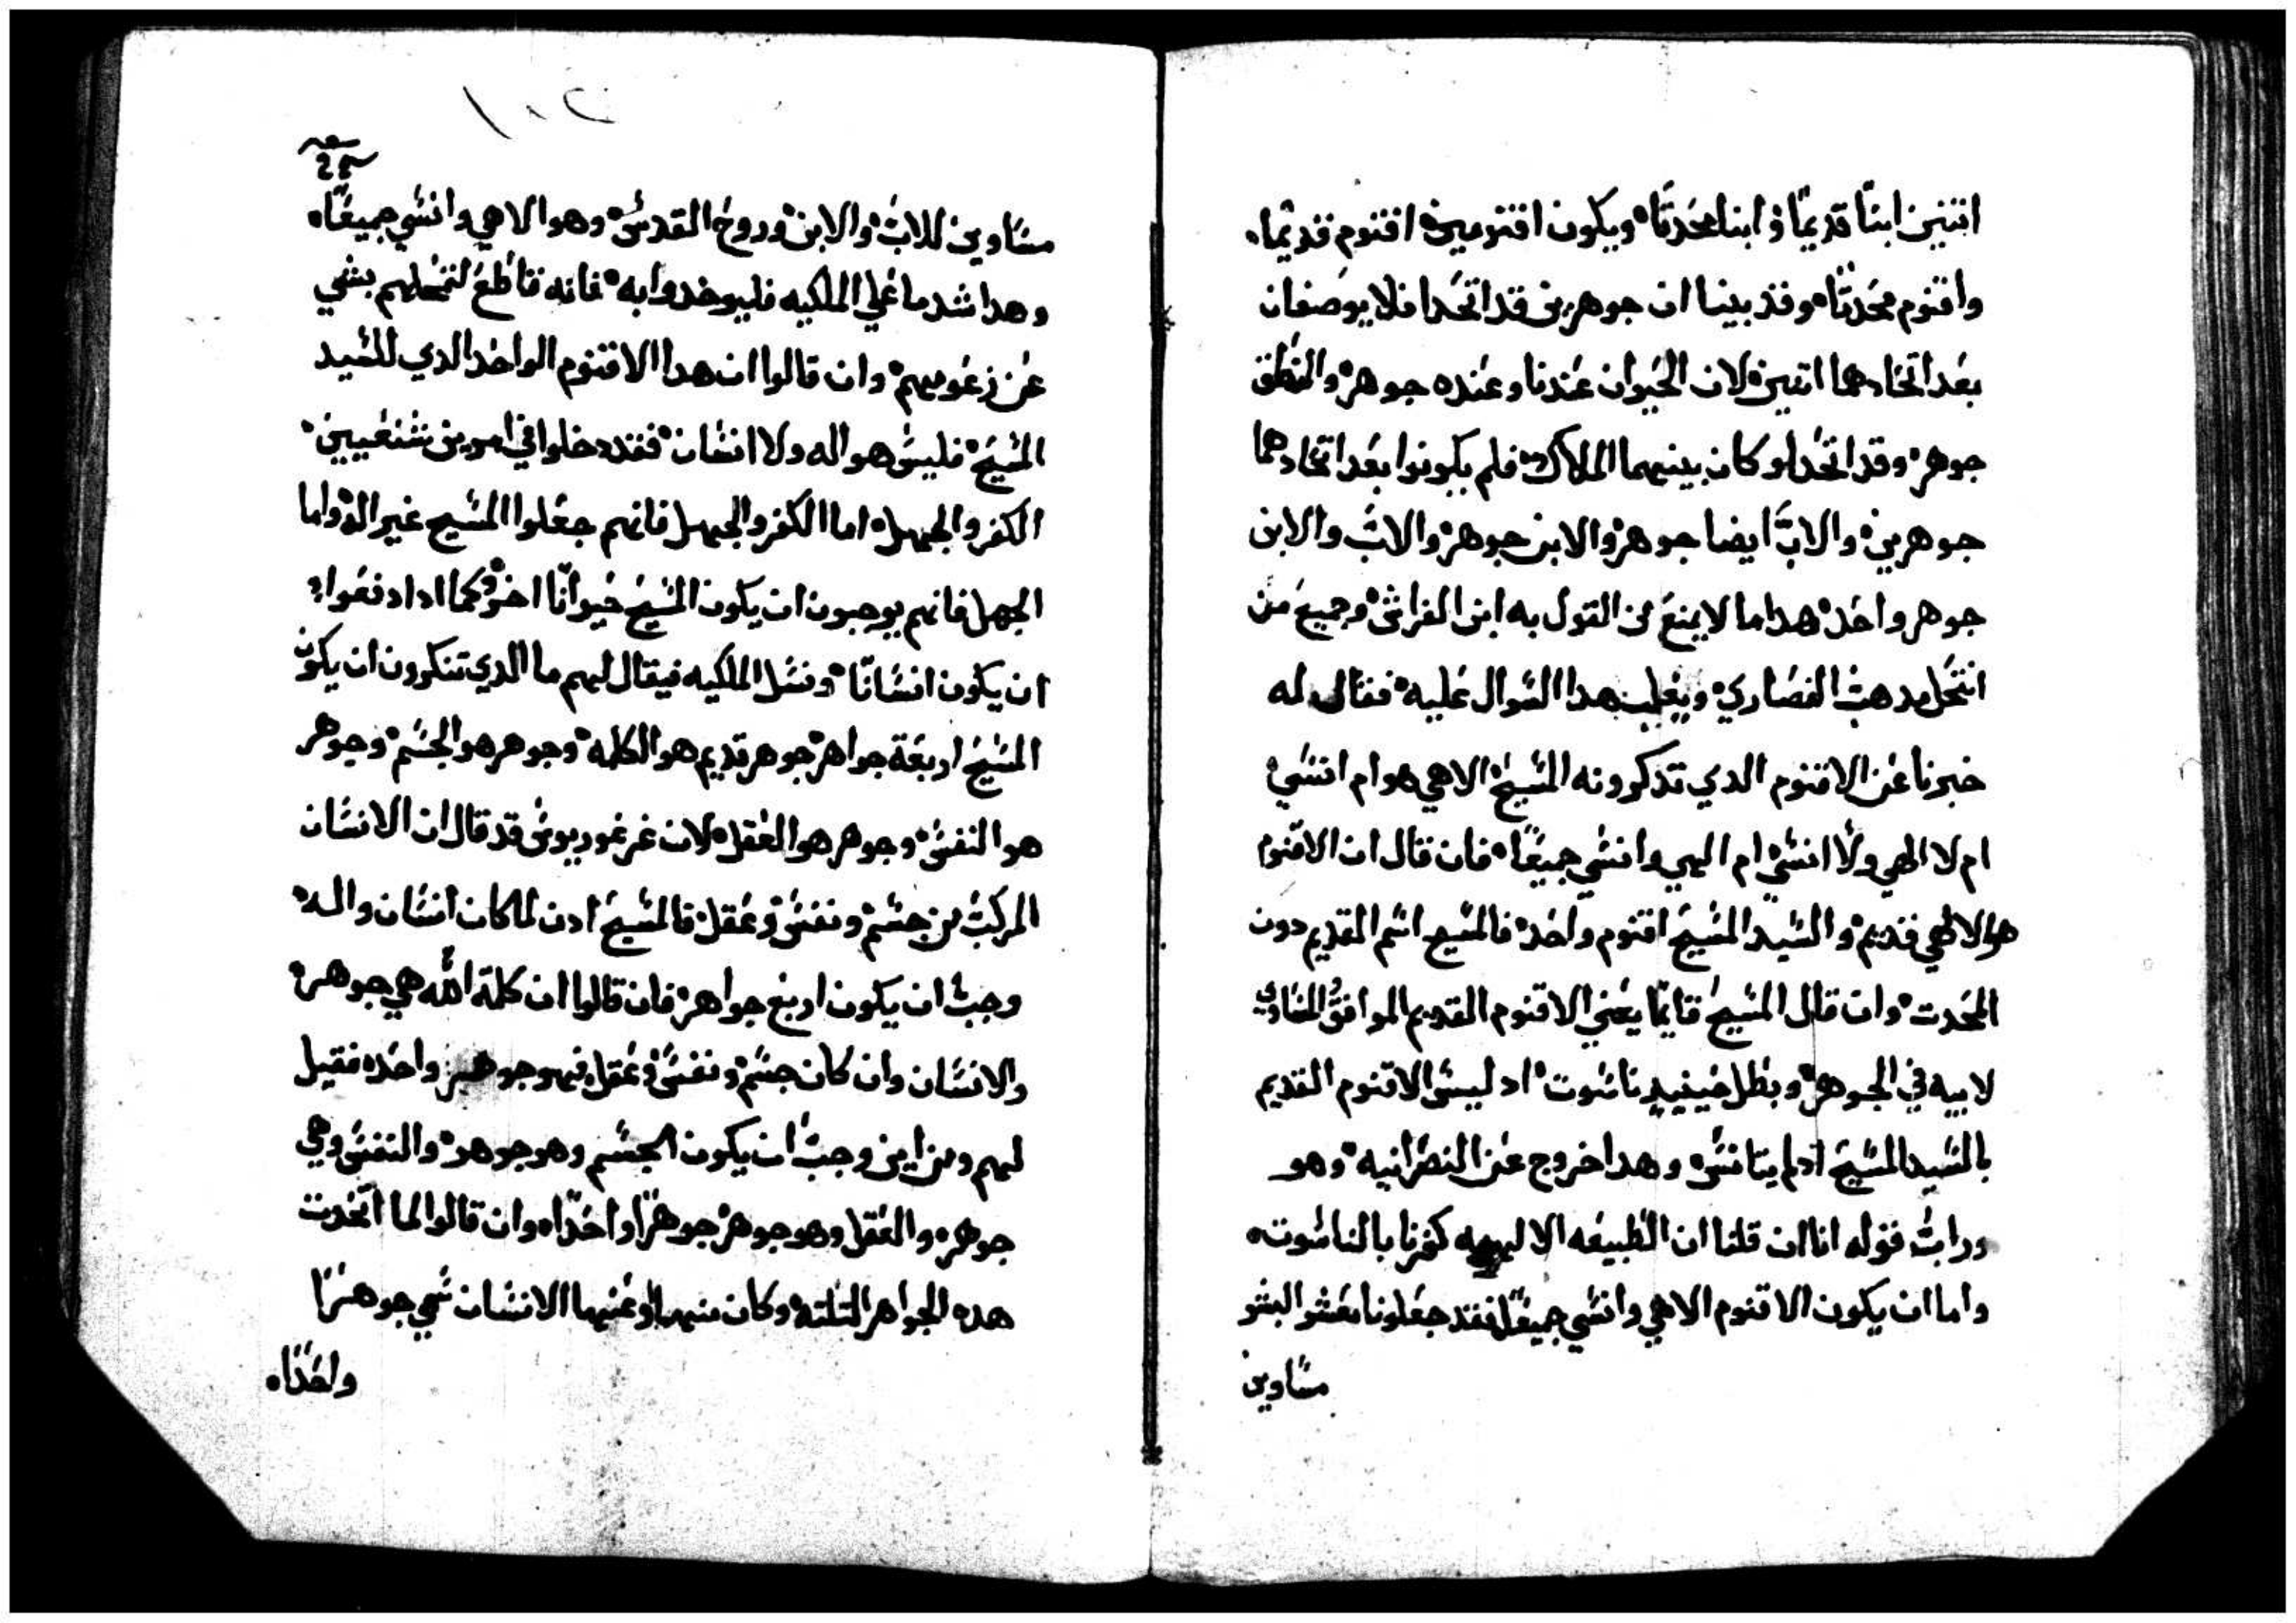 اتنين ابنًا قديمًا وابنا محدتًا ويكون اقنومين اقنوم قديمًا
واقنوم محدتًا وقد بينا ان جوهرين قد اتحدا فلا يوصفان
بعد اتحادهما اتنين لان الحيوان عندنا وعنده جوهر والنطق
جوهر وقد اتحدا وكان بينهما الملاك فلم يكونوا بعد اتحادهما
جوهرين والاب ايضا جوهر والابن جوهر والاب والابن
جوهر واحد هدا ما لا يمنع من القول به ابن الفراش وجميع من
انتحل مدهب النصاري ويغلب هدا السوال عليه فقال له
خبرنا عن الاقنوم الدي تدكرونه المسيح الاهي هو ام انسي
ام لا الهي ولا انسي ام الهي وانسي جميعًا فان قال ان الاقنوم
هو الالهي قديم والسيد المسيح اقنوم واحد فالمسيح اسم القديم دون
المحدت وان قال المسيح قايمًا يعني الاقنوم القديم الموافق المساوي
لابيه في الجوهر وبطل حينيد ناسوت اد ليس الاقنوم القديم
بالسيد المسيح اد لم يتانس وهدا خروج عن النصرانيه وهو
ورابت قوله انا ان قلنا ان الطبيعه الالهيه كفرنا بالناسوت
واما ان يكون الاقنوم الاهي وانسي جميعًا فقد جعلونا معشر البشر
مساوين
مساوين للاب والابن وروح القدس وهو الاهي وانسي جميعًا
وهدا شد ما علي الملكيه فليوخدوا به فانه قاطع لتمحلهم بشي
عن زعومهم وان قالوا ان هدا الاقنوم الواحد الدي للسيد
المسيح فليس هو اله ولا انسان فقد دخلوا في امرين شنعيين
الكفر والجهل اما الكفر والجهل فانهم جعلوا المسيح غير اله واما
الجهل فانهم يوجبون ان يكون المسيح حيوانًا اخر كما ادا دفعوا
ان يكون انسانًا ونسل الملكيه فيقال لهم ما الدي تنكرون ان يكون
المسيح اربعة جواهر جوهر قديم هو الكلمه وجوهر هو الجسم وجوهر
هو النفس وجوهر هو العقل لان غرغوريوس قد قال ان الانسان
المركب من جسم ونفس وعقل فالمسيح ادن لما كان انسان واله
وجب ان يكون اربع جواهر فان قالوا ان كلمة الله هي جوهر
والانسان وان كان جسم ونفس وعقل فهو جوهر واحد فقيل
لهم ومن اين وجب ان يكون الجسم وهو جوهر والنفس وهي
جوهر والعقل وهو جوهر جوهرًا واحدًا وان قالوا لما اتحدت
هده الجواهر التلته وكان منها وعنها الانسان سمي جوهرًا
واحدًا